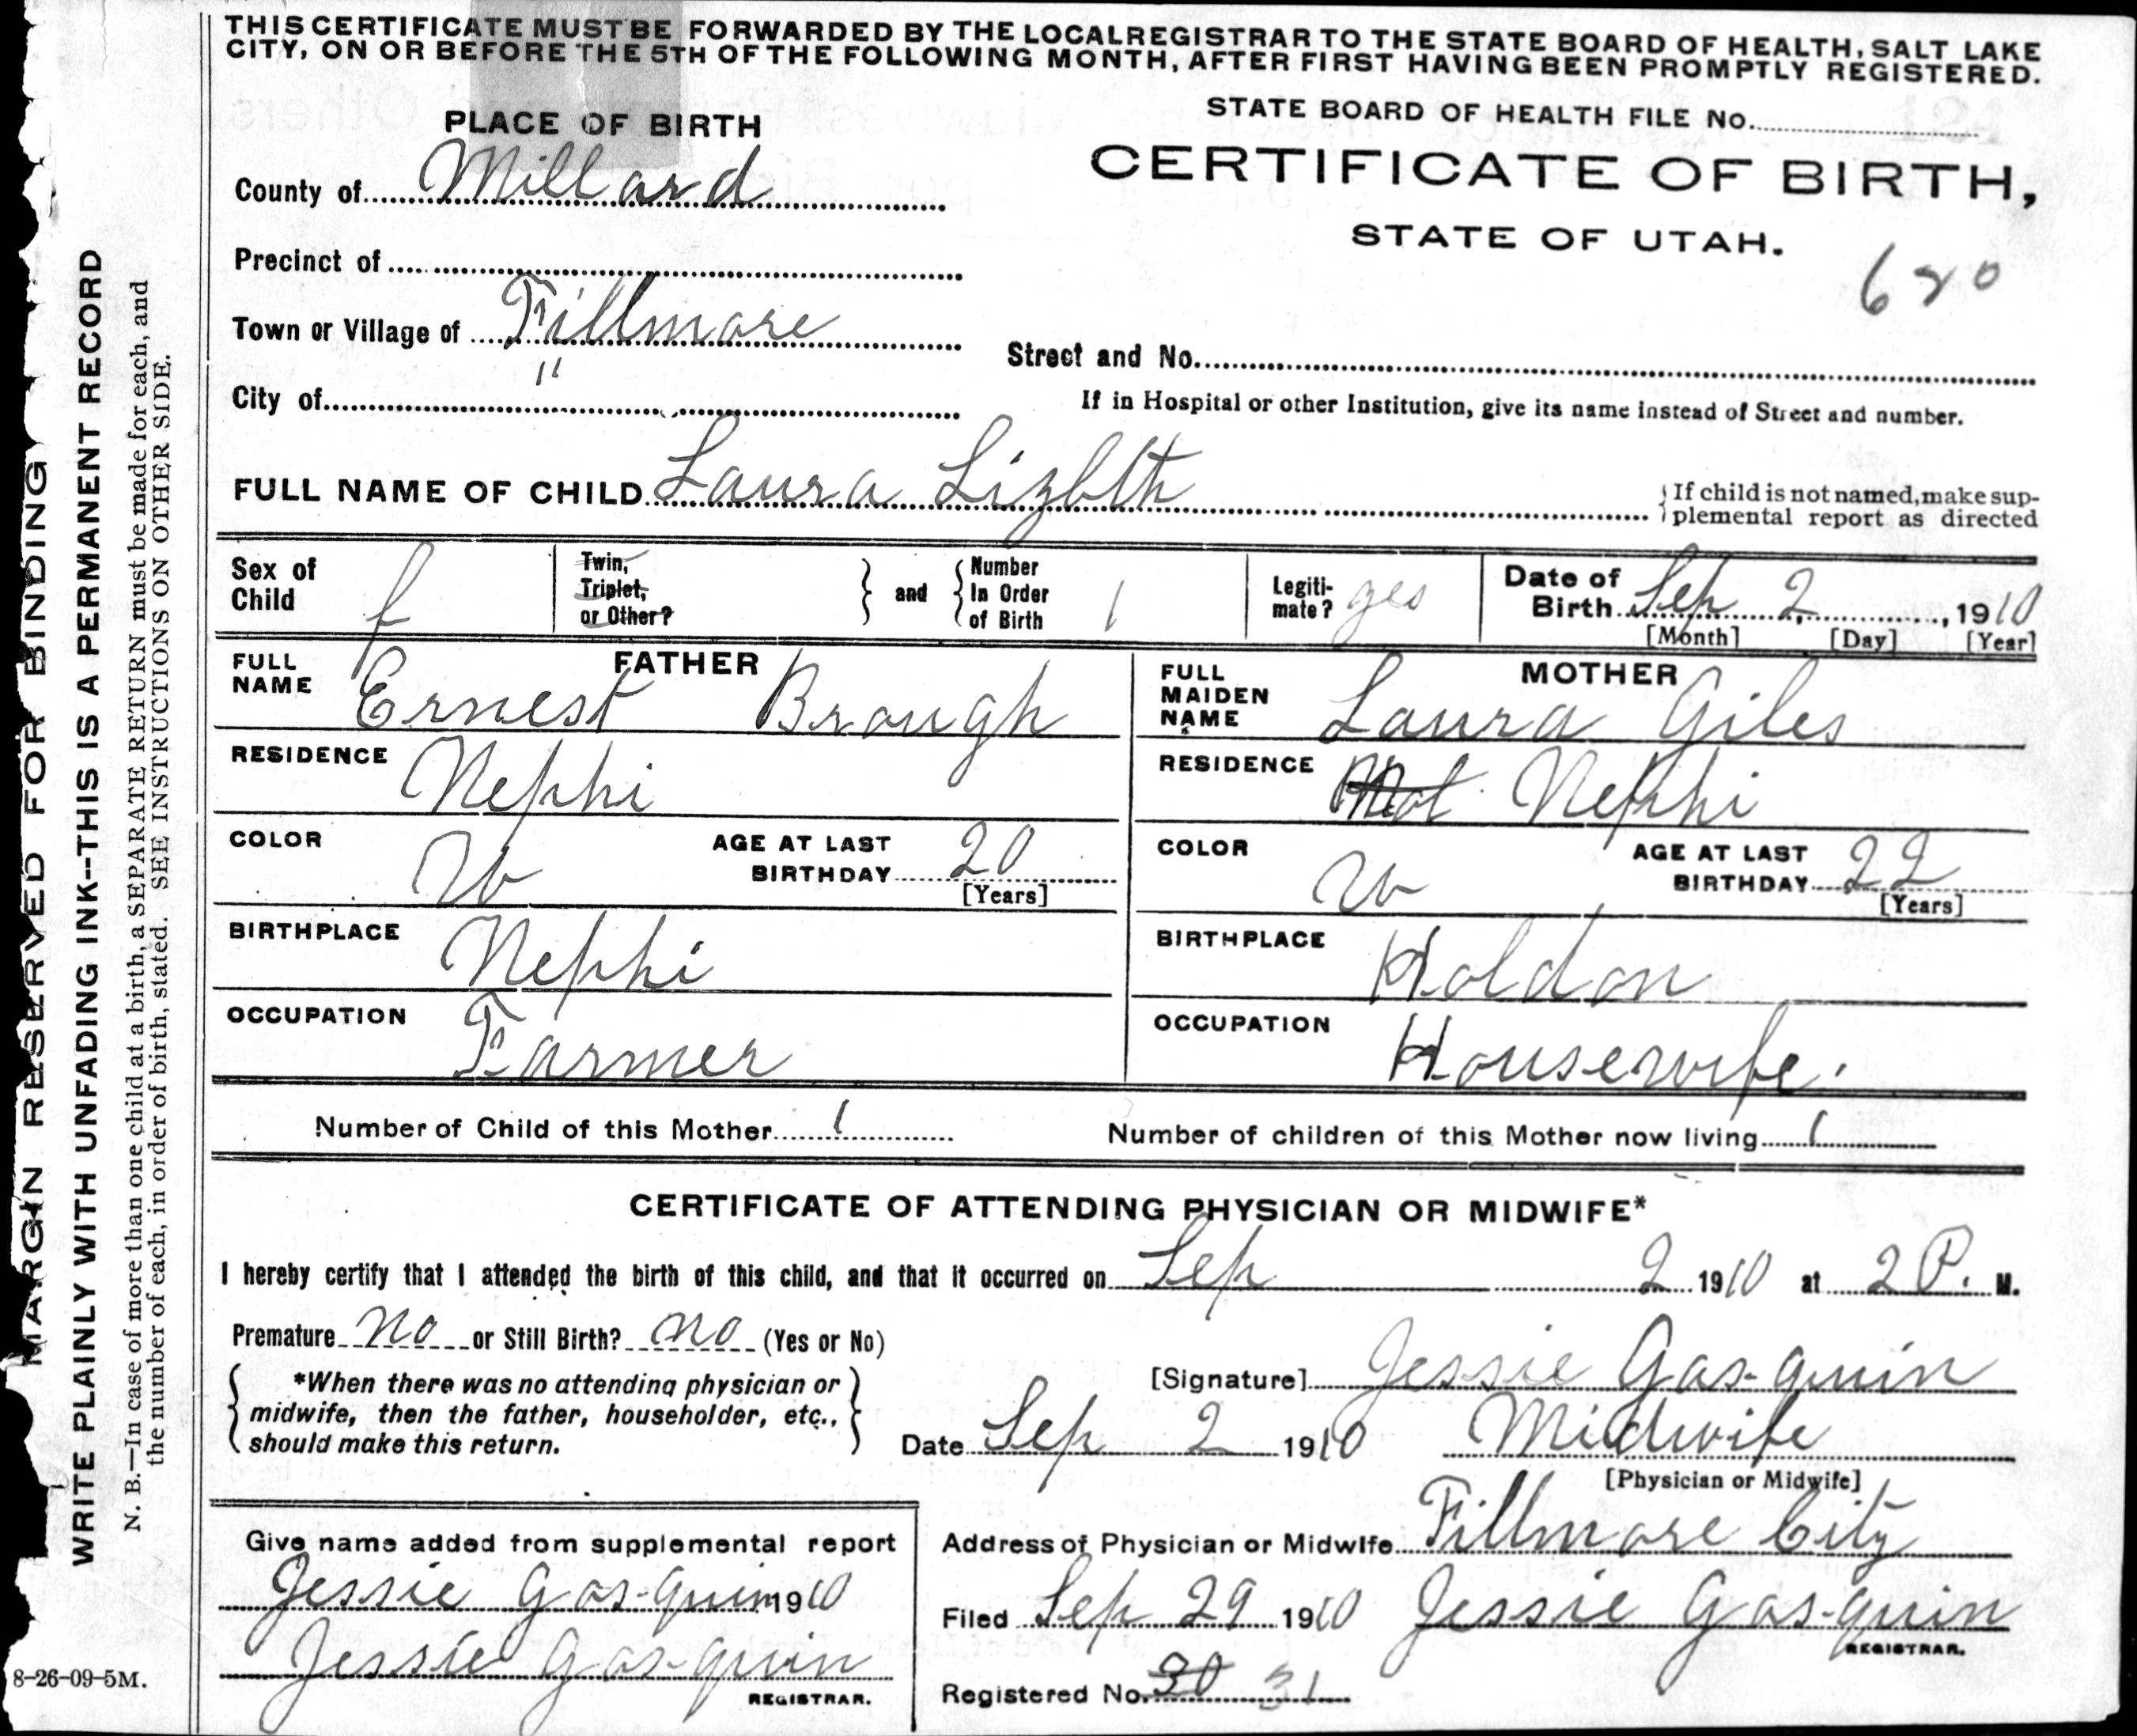 THIS CERTIFICATE MUST BE FORWARDED BY THE LOCAL REGISTRAR TO THE STATE BOARD OF HEALTH, SALT LAKE
CITY, ON OR BEFORE THE 5TH OF THE FOLLOWING MONTH, AFTER FIRST HAVING BEEN PROMPTLY REGISTERED.
STATE BOARD OF HEALTH FILE No.
PLACE OF BIRTH
CERTIFICATE OF BIRTH,
STATE OF UTAH.
County of Millard
Precinct of
Town or Village of Fillmore
City of "
Street and No.
If in Hospital or other Institution, give its name instead of Street and number.
FULL NAME OF CHILD Laura Lizbth
If child is not named, make sup-
plemental report as directed
Sex of Child f
Twin, Triplet, or Other?
and Number In Order of Birth 1
Legiti-mate? yes
Date of Birth Sep 2, 1910
[Month] [Day] [Year]
FATHER
FULL NAME Ernest Brough
RESIDENCE Nephi
COLOR W
AGE AT LAST BIRTHDAY 20
[Years]
BIRTHPLACE Nephi
OCCUPATION Farmer
MOTHER
FULL MAIDEN NAME Laura Giles
RESIDENCE Nephi
COLOR W
AGE AT LAST BIRTHDAY 22
[Years]
BIRTHPLACE Holdon
OCCUPATION Housewife.
Number of Child of this Mother 1
Number of children of this Mother now living 1
CERTIFICATE OF ATTENDING PHYSICIAN OR MIDWIFE*
I hereby certify that I attended the birth of this child, and that it occurred on Sep 2 1910 at 2 P. M.
Premature no or Still Birth? no (Yes or No)
*When there was no attending physician or
midwife, then the father, householder, etc.,
should make this return.
[Signature] Jessie Gas-quin
Date Sep 2 1910 Midwife
[Physician or Midwife]
Give name added from supplemental report
Jessie Gas-quin 1910
Jessie Gas-quin
REGISTRAR.
Address of Physician or Midwife Fillmore City
Filed Sep 29 1910 Jessie Gas-quin
REGISTRAR.
Registered No. 30 31
8-26-09-5M.
MARGIN RESERVED FOR BINDING
WRITE PLAINLY WITH UNFADING INK--THIS IS A PERMANENT RECORD
N. B.—In case of more than one child at a birth, a SEPARATE RETURN must be made for each, and
the number of each, in order of birth, stated. SEE INSTRUCTIONS ON OTHER SIDE.